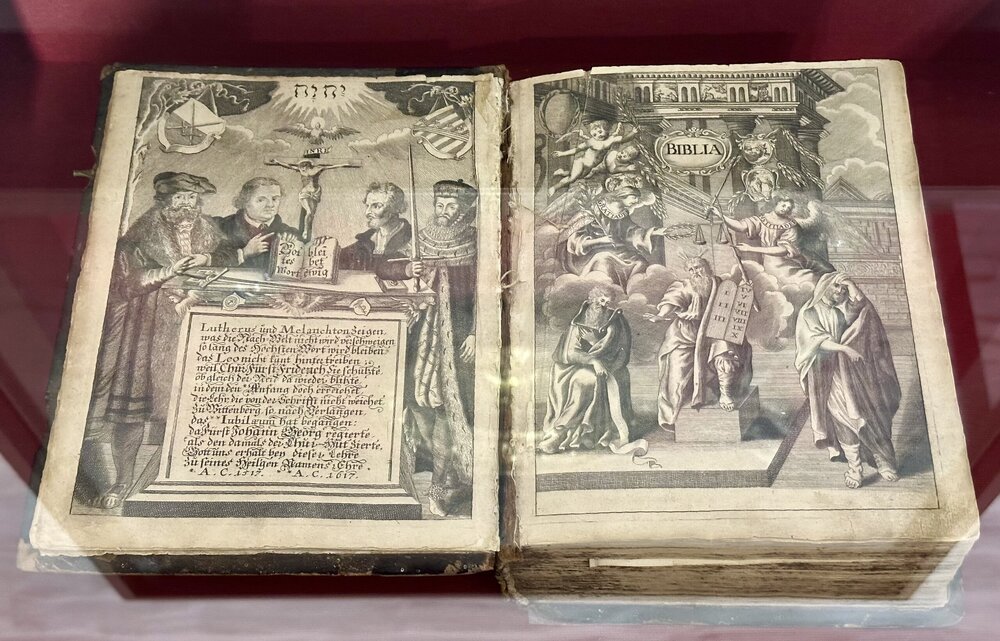 יהוה
INRI
Got blei
tes bet
Wort ewig
Lutherus und Melanchton Zeigen,
was die Nach-Welt nicht wird verschweigen
so lang des Höchsten Wort wird bleiben
das Leo nicht kunt hintertreiben;
weil Chür Fürst Friderich Sie schützte
ob gleich der Neid da wieder blitzte
in dem den * Anfang doch erreichet
die Lehr die von der Schrifft nicht weichet
Zu Wittenberg. so nach Verlangen
das ** Iubilæum hat begangen:
da Fürst Johann Georg regierte
als den damals der Chür-Hut Zierte.
Gott uns erhalt bey dieser Lehre
Zu seines Heilgen Namens Ehre.
* A. C. 1517. ** A. C. 1617.
BIBLIA
I
II
III
X